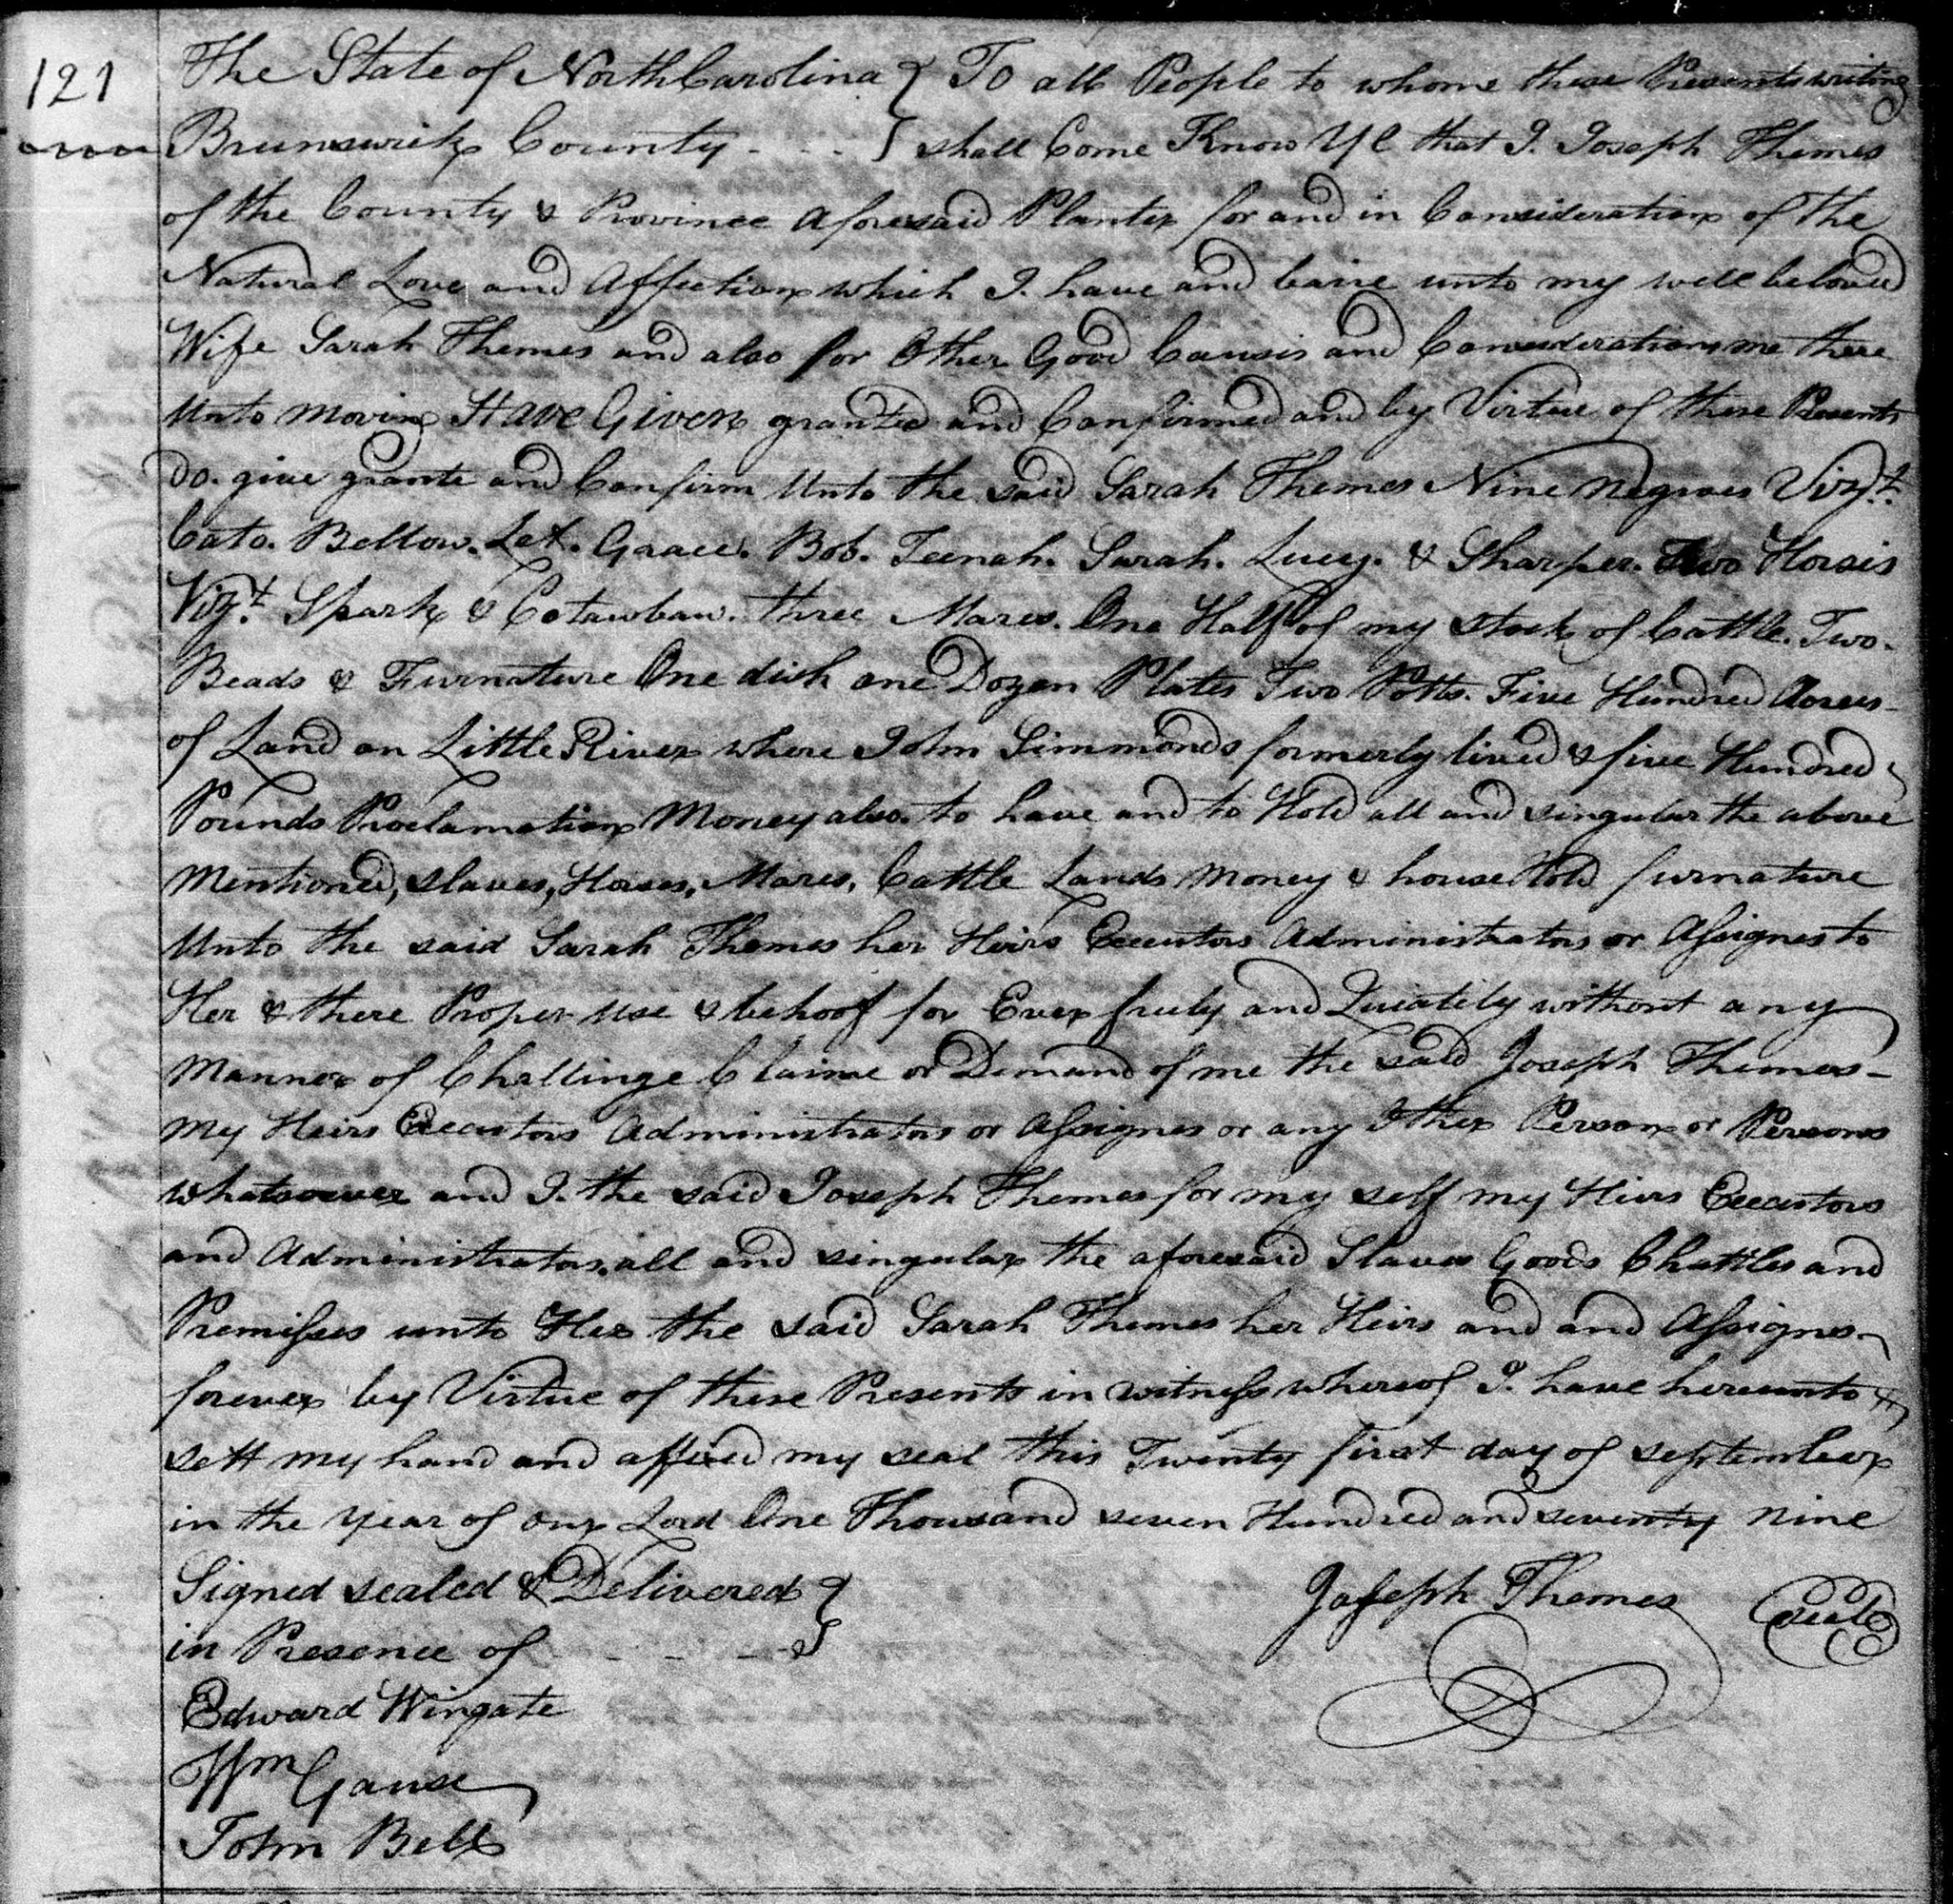 121
The State of North Carolina } To all People to whome these Presents writing
Brunswick County - - - } shall Come Know Ye that I. Joseph Themes
of the County & Province Aforesaid Planter for and in Consideration of the
Natural Love and Affection which I. have and baire unto my well beloved
Wife Sarah Themes and also for Other Good Causis and Considerations me there
Unto moving Have Given granted and Confirmed and by Virtue of these Presents
do. give grante and Confirm Unto the said Sarah Themes Nine Negroes Vizt.
Cato. Bellow. Let. Grace. Bob. Teenah. Sarah. Lucy. & Sharper. Two Horsis
Vizt. Spark & Cotawbaw. three Mares. One Half of my stock of Cattle. Two.
Beads & Furnature One dish one Dozen Plates Two Potts. Five Hundred Acres
of Land on Little River where John Simmonds formerly lived & five Hundred
Pounds Proclamation Money also. to have and to Hold all and singular the above
Mentioned, slaves, Horses, Mares, Cattle Lands Money & house Hold furnature
Unto the said Sarah Themes her Heirs Executors Administrators or Assignes to
Her & there Proper use & behoof for Ever freely and Quiatily without any
Manner of Challinge Claime or Demand of me the said Joseph Themes -
My Heirs Executors Administrators or Assignes or any Other Person or Persons
whatsoever and I. the said Joseph Themes for my self my Hiers Executors
and Administrators, all and singular the aforesaid Slaves Goods Chattles and
Premisses unto Her the said Sarah Themes her Heirs and and Assignes
forever by Virtue of these Presents in witness whereof I. have hereunto
sett my hand and affixed my seal this Twenty first day of september
in the year of our Lord One Thousand seven Hundred and seventy nine
Signed sealed & Delivered }
in Presence of - - - - }
Joseph Themes seal
Edward Wingate
Wm Gause
John Bell